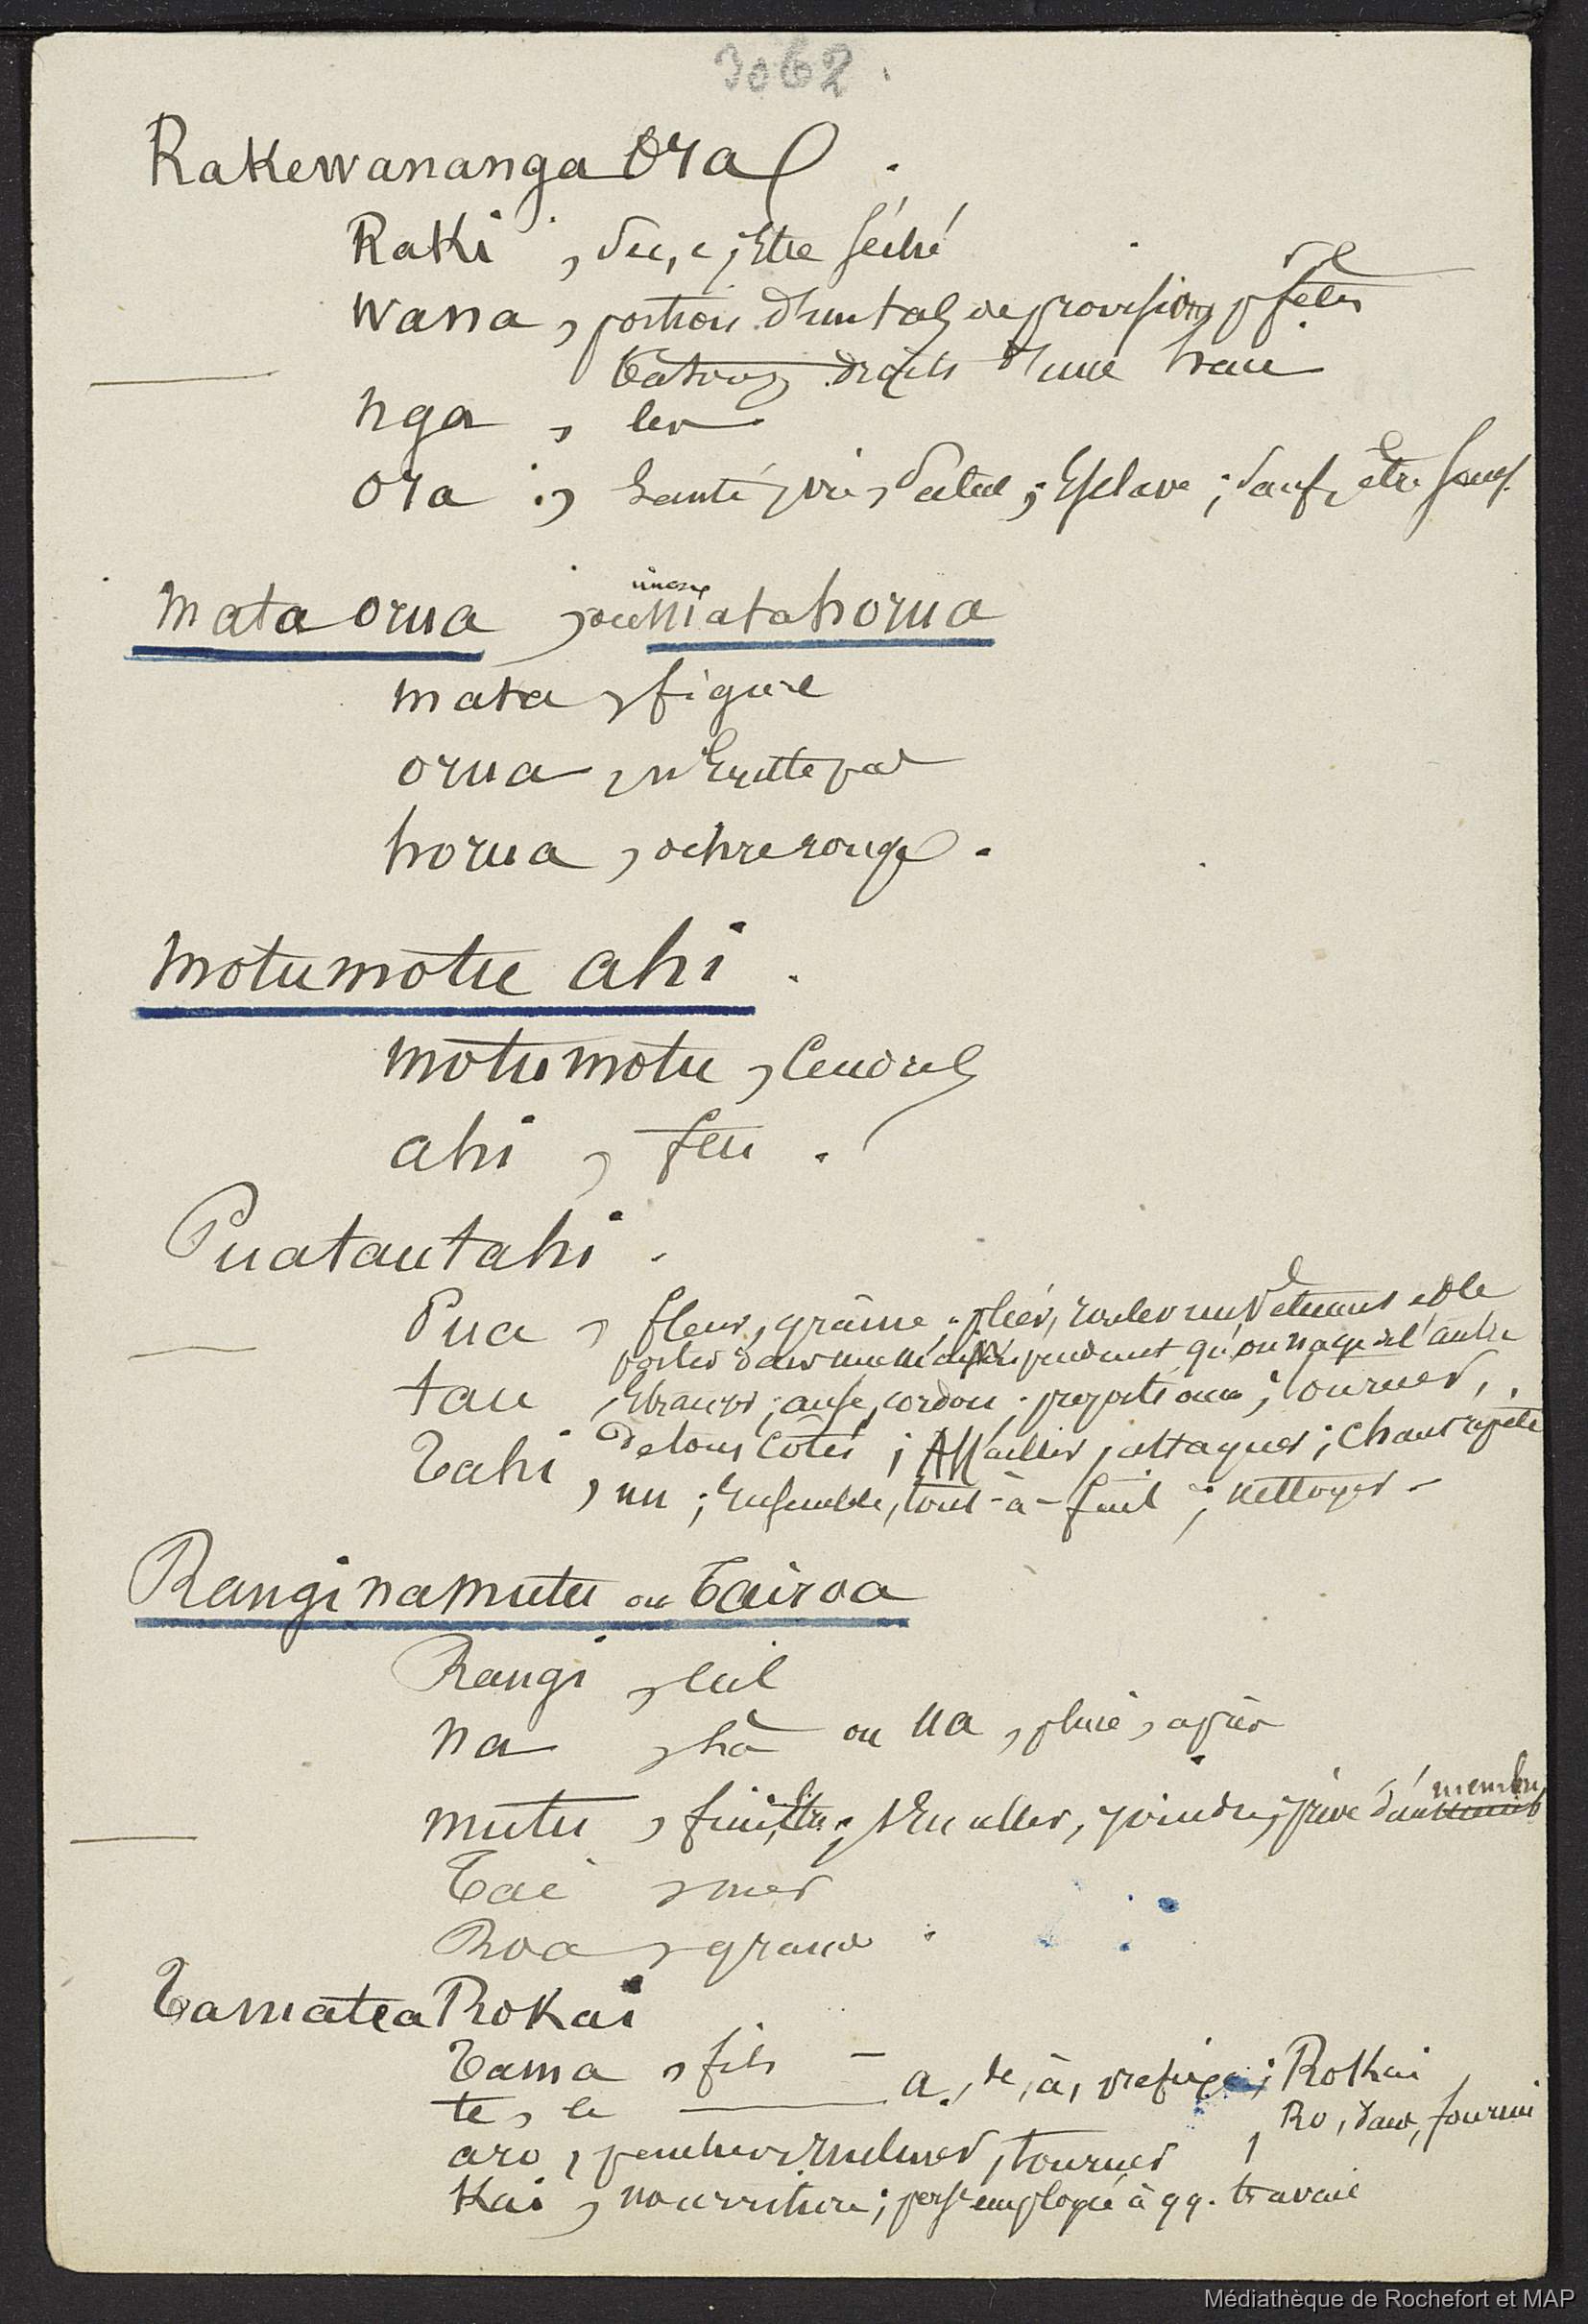 3062.
Rakewananga Ora.
Raki, sec, ; Etre séché
Wana, portion d'un tas de provisions p fêtes
droits d'une
nga, les
Ora, Santé, vie, Salut; Esclave; sauf, être sauf.
Mata orua, ou Matahorua
mata, figure
orua,
horua, ochre rouge.
Motumotu ahi.
motumotu, Cendres
ahi, feu.
Puatautahi.
Pua, fleur, graine; plier, rouler un et le
porter dans une pendant qu'on l'autre
tau, Etranger; anse, cordon; ; tourner,
de tous côtés; Assaillir, attaquer; chant répété
Tahi, un; Ensemble, tout-à-fait; nettoyer-
Ranginamutu ou Tairoa
Rangi, ciel
na, là ou ua, pluie, après
membre
mutu, fini, Etre; s'En aller, joindre, privé d'un
Tai, mer
Roa, grand.
Tamatea Rokai
Tama, fils - a, de, à, préfixe; Rokai
te, le Ro, dans, fourmi
aro, pencher, incliner, tourner
Kai, nourriture; perse employée à qq. travail
Médiathèque de Rochefort et MAP